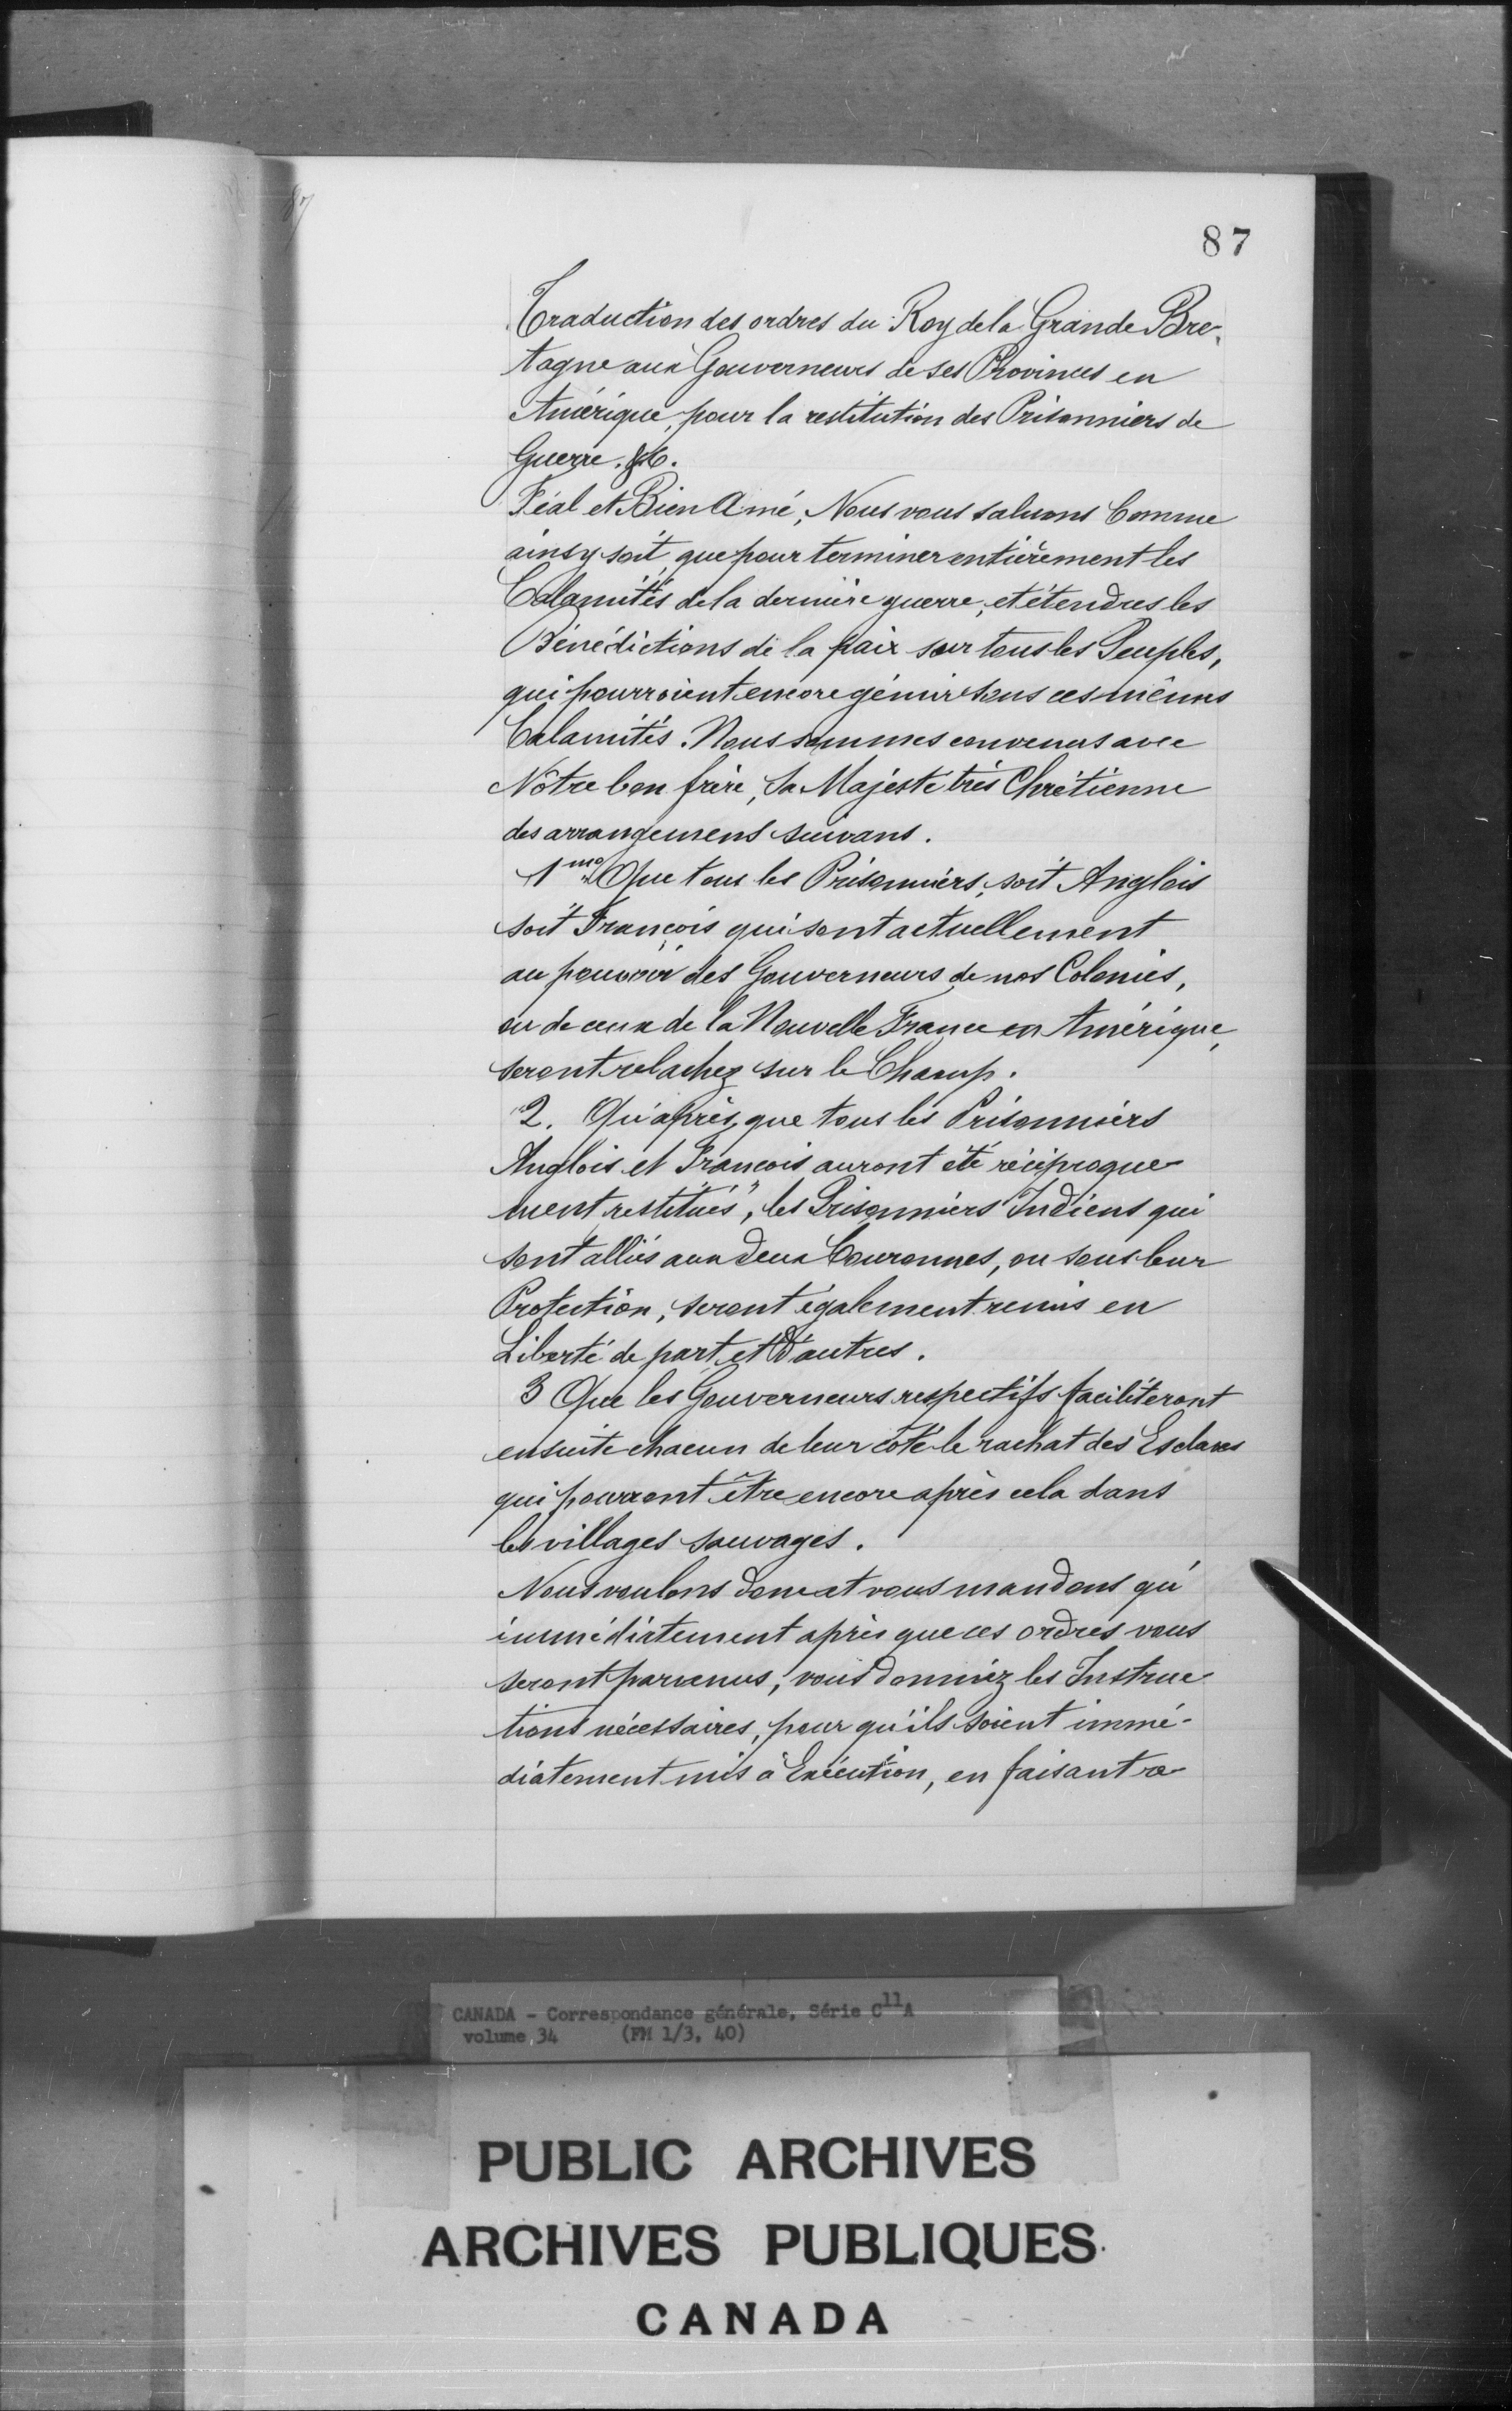 87
87
Traduction des ordres du Roy de la Grande Bre-
tagne aux Gouverneurs de ses Provinces en
Amérique, pour la restitution des Prisonniers de
Guerre. &c.
Féal et Bien Amé, Nous vous saluons Comme
ainsy soit, que pour terminer entièrement les
Calamités de la dernière guerre, et étendres les
Bénédictions de la paix sur tous les Peuples,
qui pourroient encore gémir sous ces mêmes
Calamités. Nous sommes convenus avec
Nôtre bon frère, Sa Majesté très Chrétienne
des arrangemens suivans.
1mo Que tous les Prisonniers, soit Anglois
soit François qui sont actuellement
au pouvoir des Gouverneurs de nos Colonies,
ou de ceux de la Nouvelle France en Amérique,
seront relachez sur le Champ.
2. Qu'après que tous les Prisonniers
Anglois et François auront été réciproque-
ment restitués, les Prisonniers Indiens qui
sont alliés aux deux Couronnes, ou sous leur
Protection, seront également remis en
Liberté de part et d'autres.
3 Que les Gouverneurs respectifs faciliteront
ensuite chacun de leur côté le rachat des Esclaves
qui pourront être encore après cela dans
les villages sauvages.
Nous voulons donc et vous mandons qu'
immédiatement après que ces ordres vous
seront parvenus, vous donniez les Instruc-
tions nécessaires, pour qu'ils soient immé-
diatement mis à Exécution, en faisant re-
CANADA - Correspondance générale, Série C11A
volume 34 (FM 1/3, 40)
PUBLIC ARCHIVES
ARCHIVES PUBLIQUES
CANADA